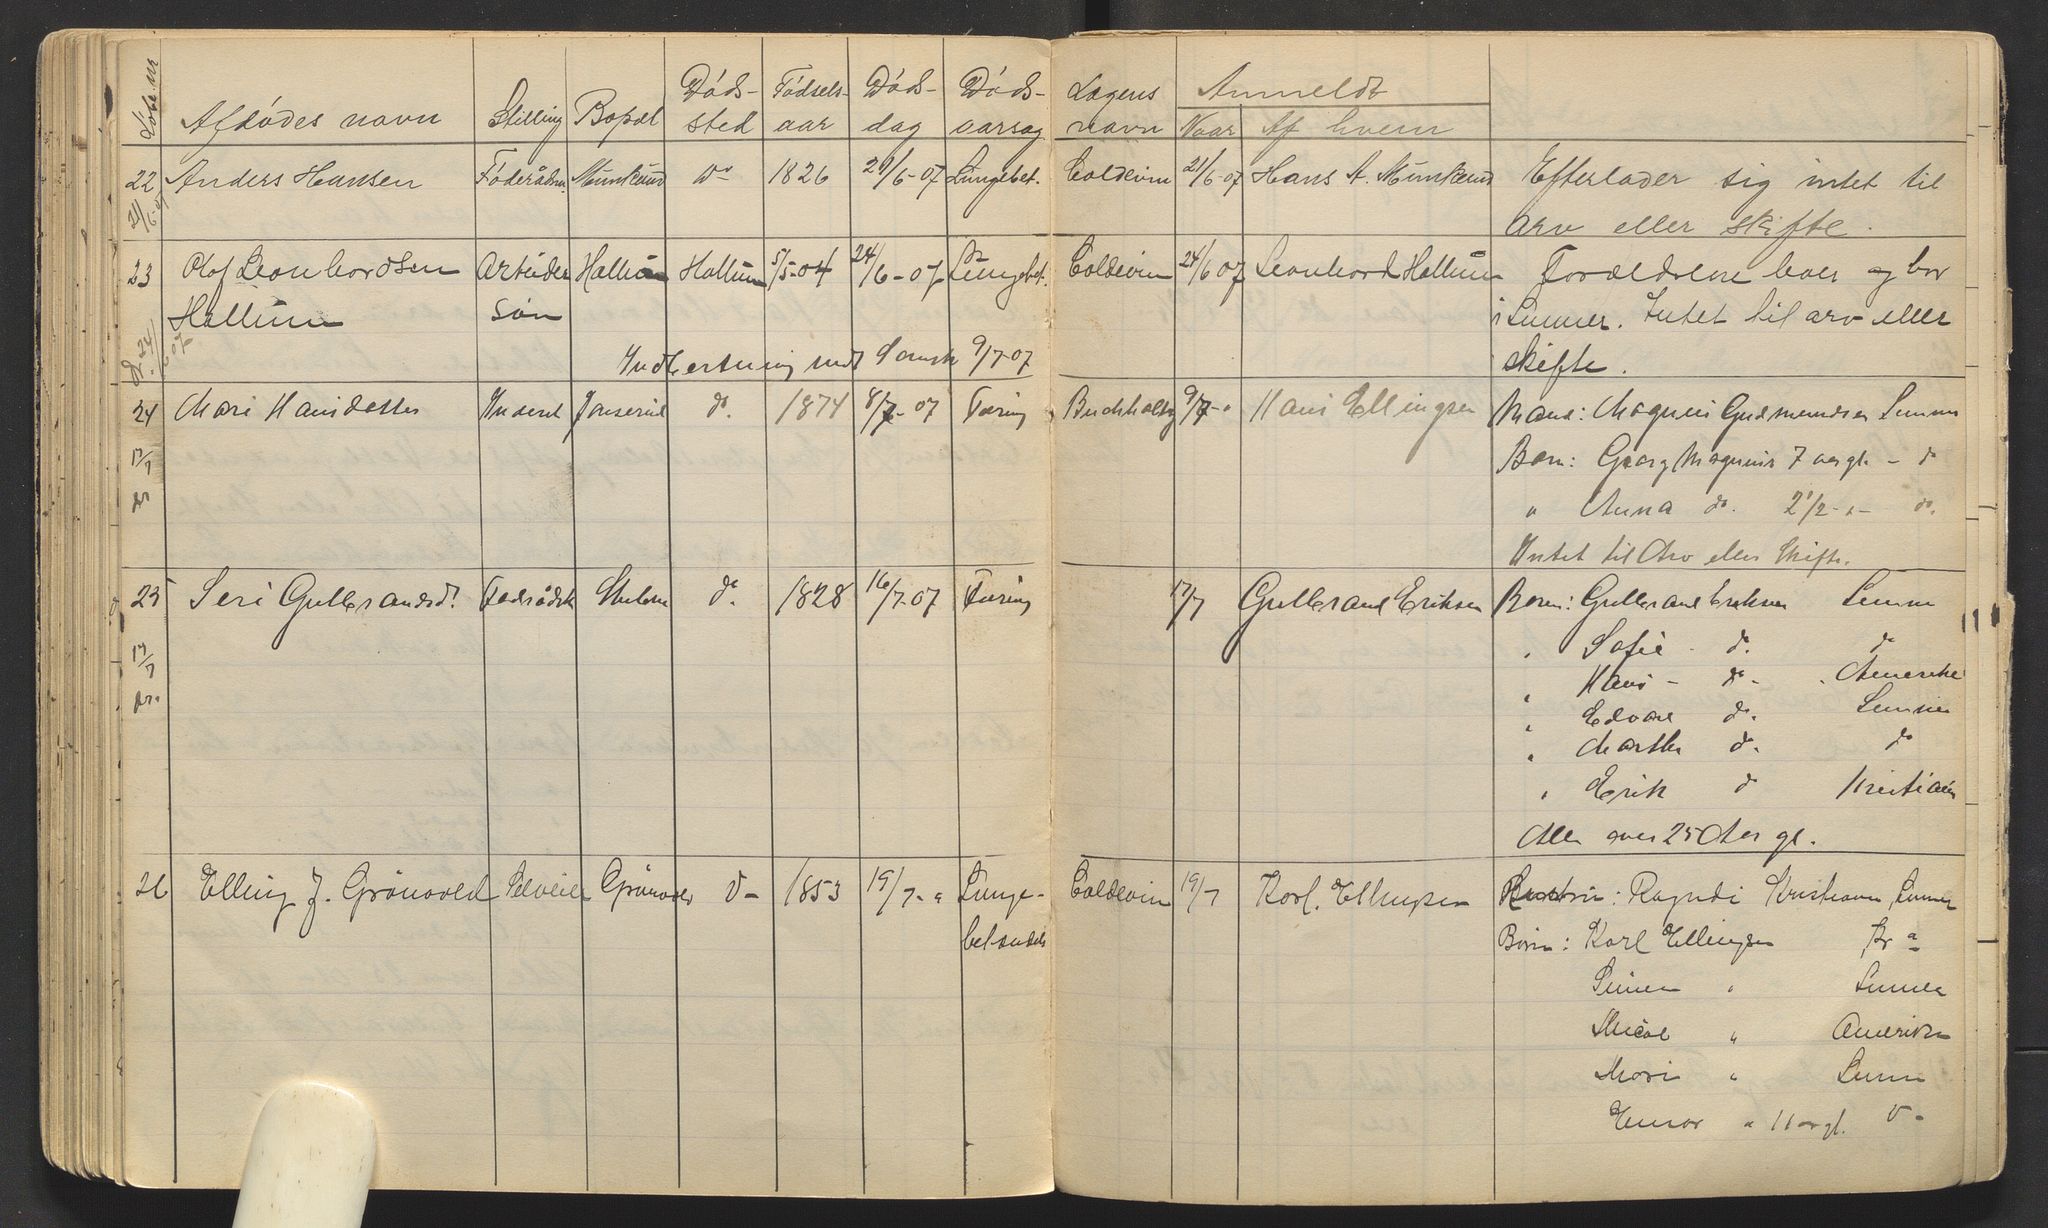 Løbe nr | Afdødes navn | Stilling | Bopæl | Døds-sted | Fødsels-aar | Døds-dag | Døds-aarsag | Lægens navn | Anmeldt Naar | Af hvem
22 21/6-07 | Anders Hansen | Føderådm | Munkerud | Do | 1826 | 21/6-07 | Lungebet. | Coldevin | 21/6-07 | Hans A. Munkerud | Efterlader sig intet til
arv eller skifte.
23 | Olof Leonhardsen | Arbeider | Hallum | Hallum | 5/5-04 | 24/6-07 | Lungebet. | Coldevin | 24/6 07 | Leonhard Hallum | Forældrene lever og bor
Hallum | søn | i Lunner. Intet til arv eller
24/6 07 | Indberetning sendt 9/7-07 | skifte.
24 | Mari Hansdatter | Inderst | do. | 1874 | 8/7-07 | Tæring | Buchholtz | 9/7-" | Hans Ellingsen | Mand: Magnus Gudmundsen Lunner
17/7 | Barn: Georg Magnus 7 aar gl. - do
" Anna do. 2 1/2 - " - do.
Intet til Arv eller Skifte.
25 | Seri Gulbrandsd. | Føderådsk | do. | 1828 | 16/7-07 | Tæring | 17/7 | Gulbrand Eriksen | Børn: Gulbrand Eriksen Lunner
" Sofie - do. do
17/7 | " Hans - do - " Amerika
" Edvard do. Lunner
" Marthe do. do
" Erik do Kristiania
Alle over 25 Aar gl.
26 | Elling J. Grönvold | Selveier | Grönvold | D- | 1853 | 19/7-" | Lunge- | Coldevin | 19/7 | Karl Ellingsen | Hustru: Ragndi Kristiansd. Lunner
betændels | Børn: Karl Ellingsen Kr a
Simen " Lunner
" Amerika
Mari " Lunner
Einar " 11 aar gl. D-